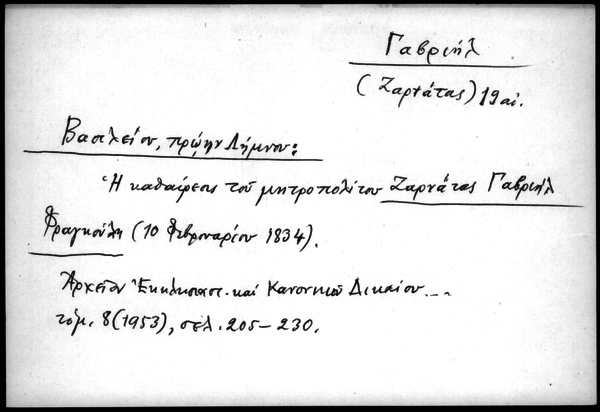 Γαβριήλ
(Ζαρνάτας) 19 αἰ.
Βασιλείου, πρώην Λήμνου:
Ἡ καθαίρεσις τοῦ μητροπολίτου Ζαρνάτας Γαβριήλ
Φραγκούλη (10 Φεβρουαρίου 1834).
Ἀρχεῖον Ἐκκλησιαστ. καί Κανονικοῦ Δικαίου...
τόμ. 8 (1953), σελ. 205-230.